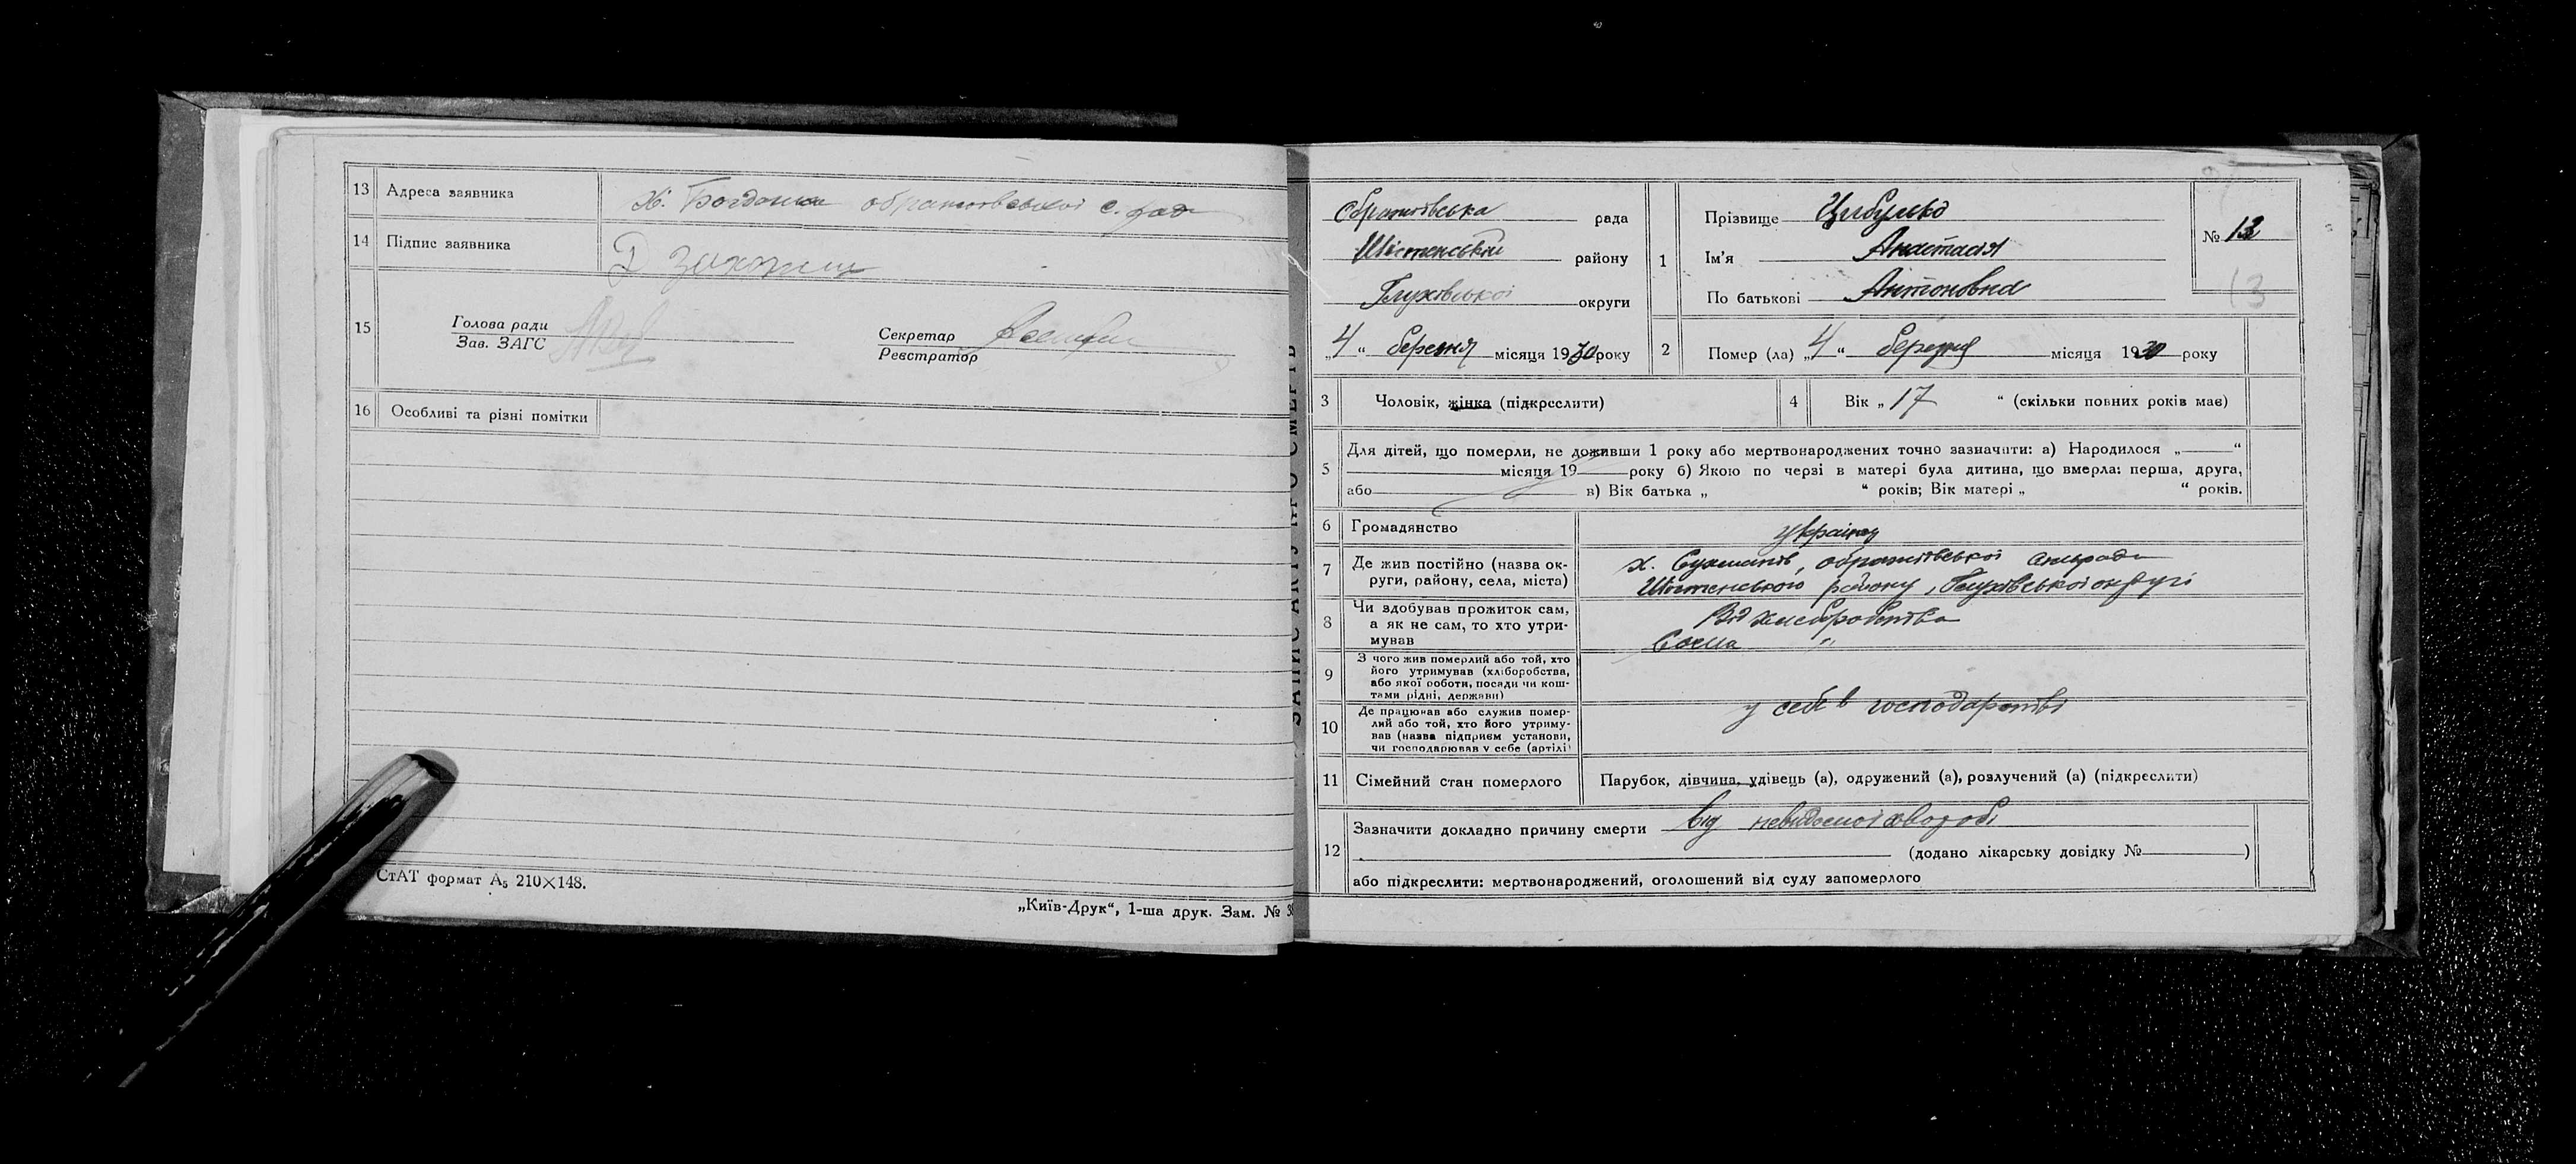 13 Адреса заявника х. Богданка обратіївської с. ради
14 Підпис заявника
15 Голова ради
Зав. ЗАГС
Секретар
Реєстратор
16 Особливі та різні помітки
СтАТ формат А₅ 210×148.
„Київ-Друк“, 1-ша друк. Зам. №
ЗАПИС АКТУ ПРО СМЕРТЬ
рада
району
Глухівської округи
„4“ березня місяця 1930 року
1 Прізвище Цибулько
Ім'я Анастасія
По батькові Антоновна
№ 13
13
2 Помер (ла) „4“ березня місяця 1930 року
3 Чоловік, жінка (підкреслити)
4 Вік „17“ (скільки повних років має)
5 Для дітей, що померли, не доживши 1 року або мертвонароджених точно зазначити: а) Народилося „ “
місяця 19 року б) Якою по черзі в матері була дитина, що вмерла: перша, друга,
або в) Вік батька „ “ років; Вік матері „ “ років.
6 Громадянство україн
7 Де жив постійно (назва округи, району, села, міста) х. сільради
району, Глухівської округи
8 Чи здобував прожиток сам,
а як не сам, то хто утримував
Від хліборобства
Сама "
9 З чого жив померлий або той, хто
його утримував (хліборобства,
або якої роботи, посади чи коштами рідні, держави)
10 Де працював або служив померлий або той, хто його утримував (назва підприєм установи,
чи господарював у себе (артілі)
у себе в господарстві
11 Сімейний стан померлого Парубок, дівчина, удівець (а), одружений (а), розлучений (а) (підкреслити)
12 Зазначити докладно причину смерти від невідомої хвороби
(додано лікарську довідку № )
або підкреслити: мертвонароджений, оголошений від суду запомерлого